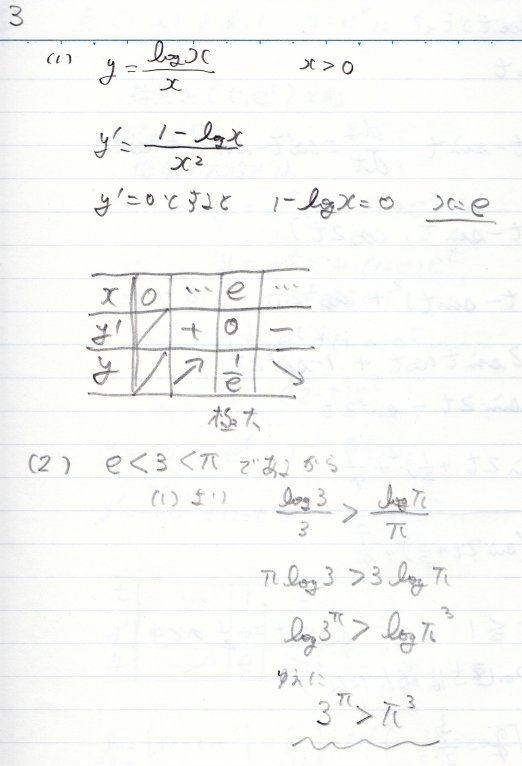 3
(1) y = log x / x  x > 0
y' = (1 - log x) / x²
y' = 0 とすると 1 - log x = 0 x = e
x 0 … e …
y' ／ + 0 −
y ／ ↗ 1/e ↘
極大
(2) e < 3 < π であるから
(1) より log 3 / 3 > log π / π
π log 3 > 3 log π
log 3^π > log π^3
ゆえに
3^π > π^3